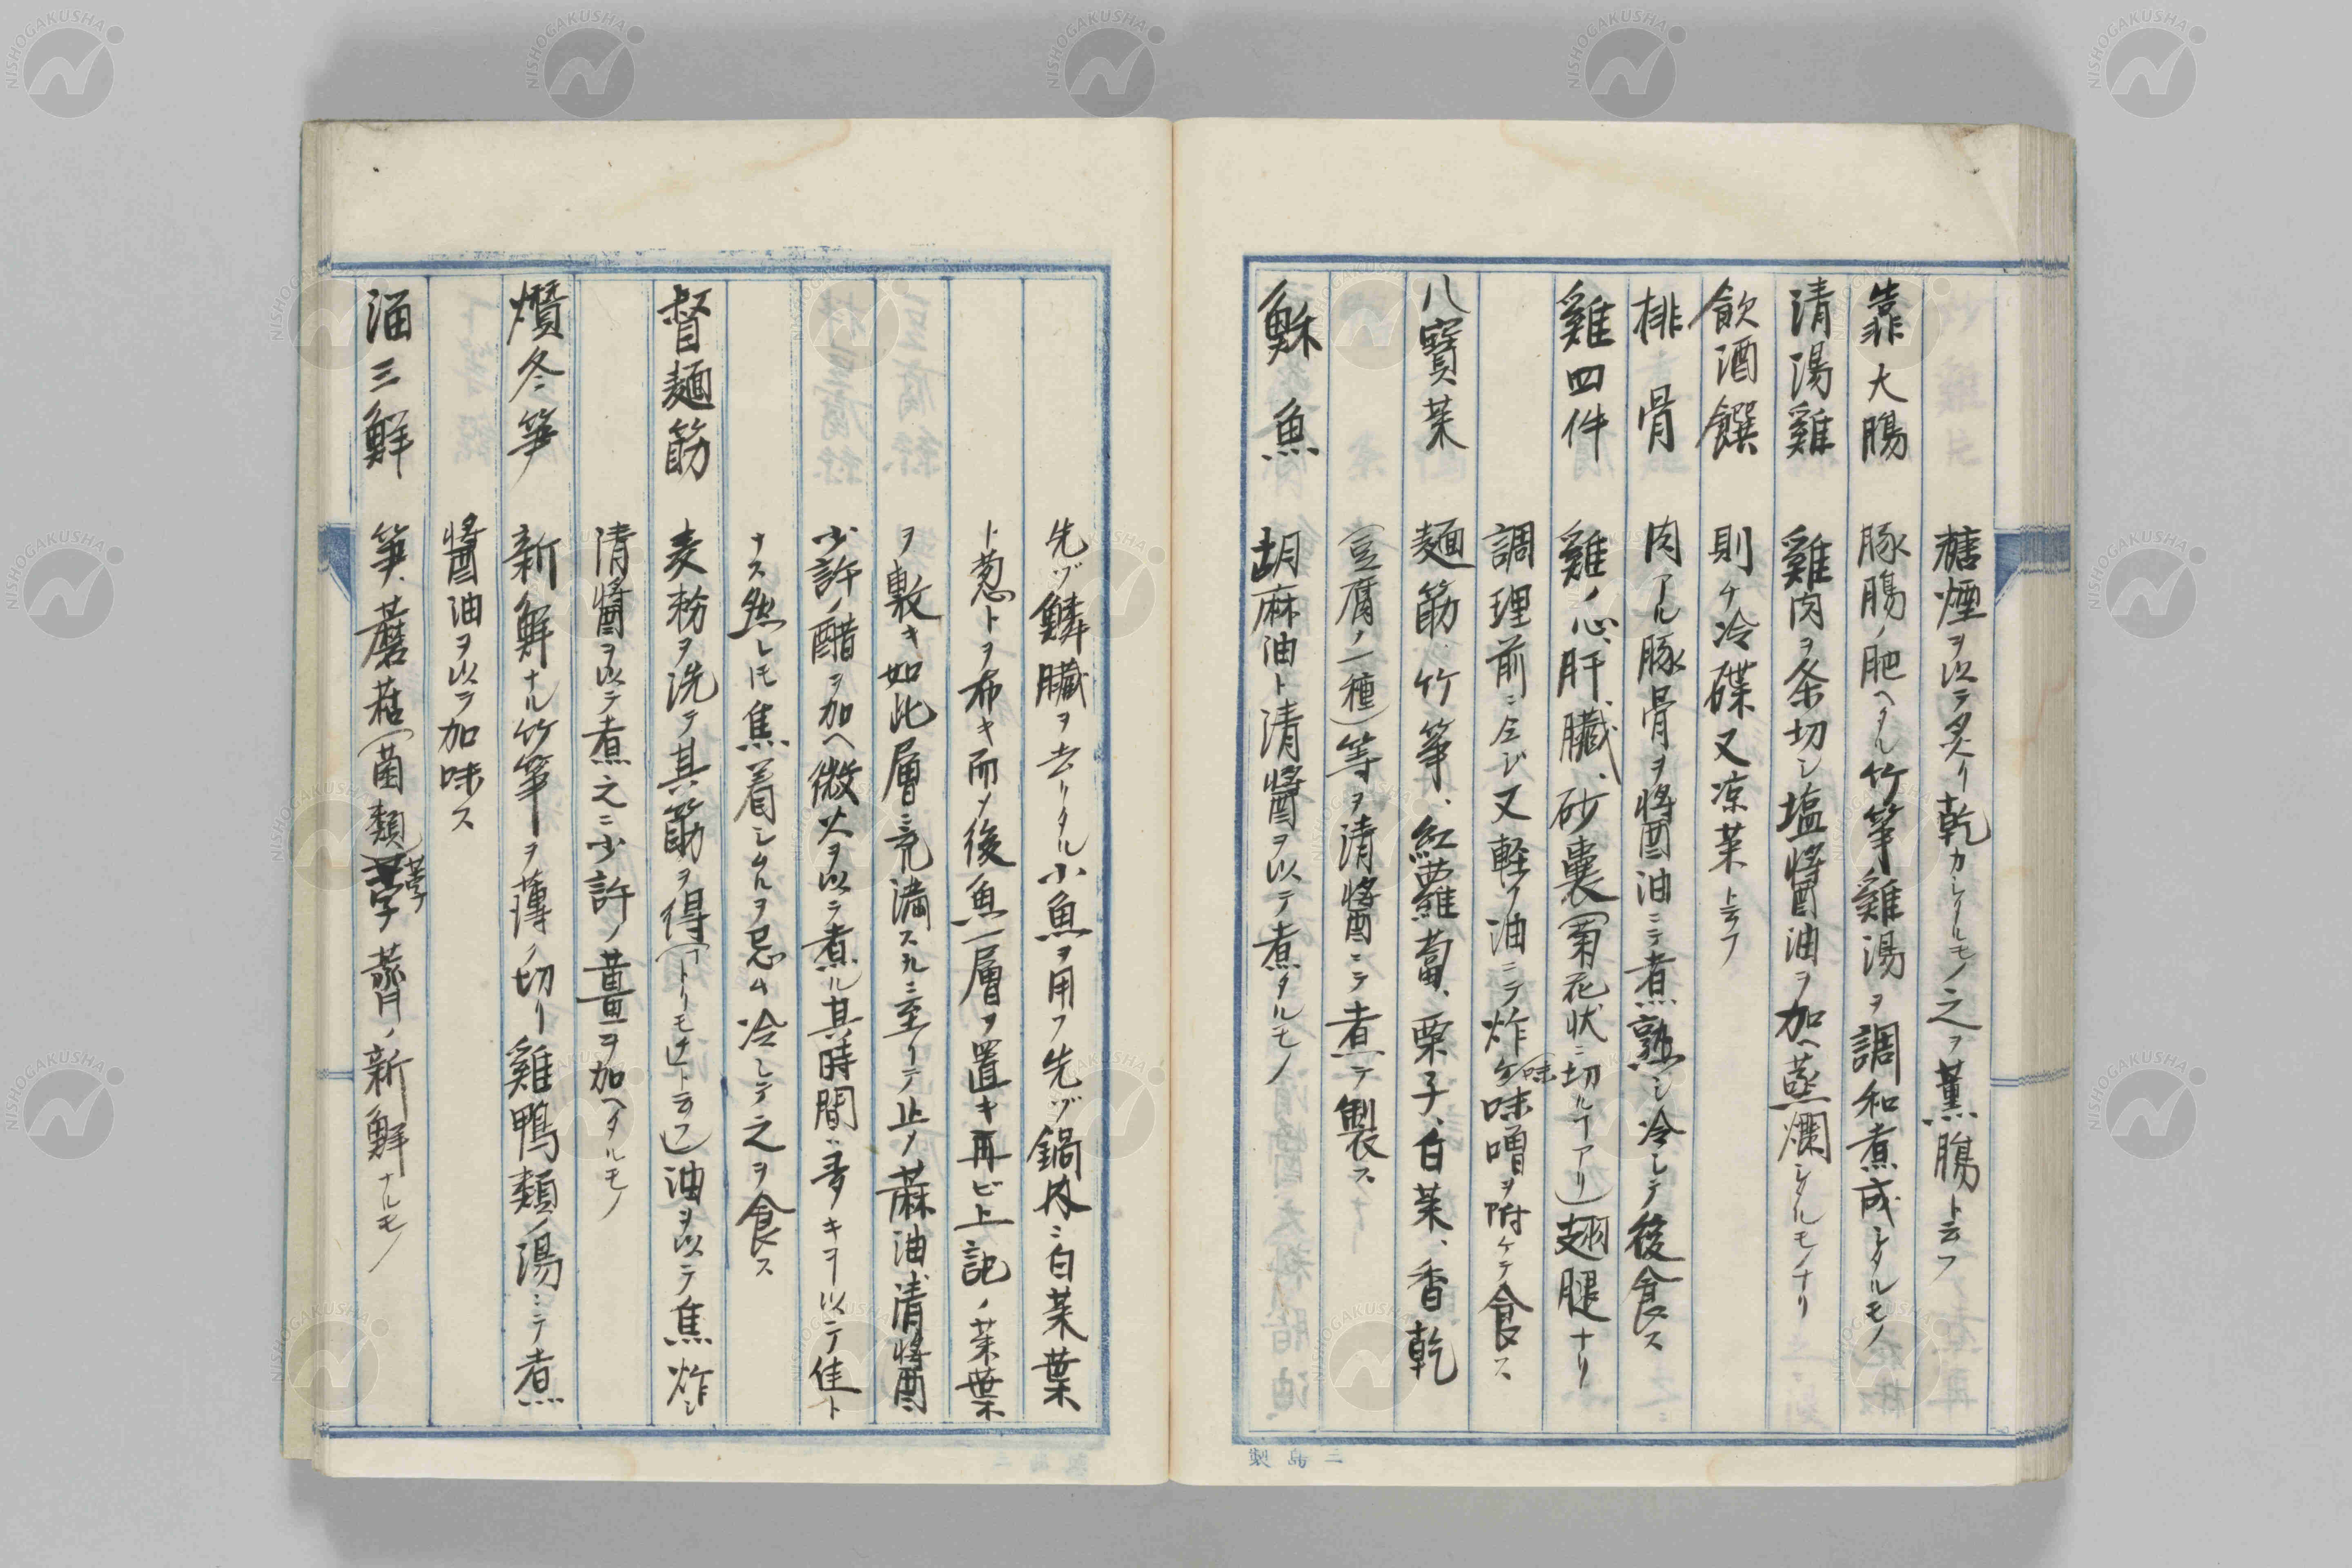 糖煙ヲ以テ炙リ乾カシタルモノ之ヲ薫腸ト云フ
靠大腸 豚腸ノ肥ヘタル竹筝雞湯ヲ調和煮成シタルモノ
清湯雞 雞肉ヲ条切シ塩醬油ヲ加ヘ蒸爛シタルモノナリ
飲酒饌 則チ冷碟又凉菜ト云フ
排骨 肉アル豚骨ヲ醬油ニテ煮熟シ冷シテ後食ス
雞四件 雞ノ心、肝、臓、砂嚢(菊花状ニ切ルヿアリ)翅腿ナリ
調理前ニ仝ジ又軽ク油ニテ炸ケ味噌ヲ附ケテ食ス
八寶菜 麺筋、竹筝、紅蘿蔔、栗子、白菜、香乾
(豆腐ノ一種)等ヲ清醬ニテ煮テ製ス
穌魚 胡麻油ト清醬ヲ以テ煮タルモノ
二島製
先ヅ鱗臓ヲ去リタル小魚ヲ用フ先ヅ鍋内ニ白菜葉
ト葱トヲ布キ而メ後魚一層ヲ置キ再ビ上記ノ菜葉
ヲ敷キ如此層ニ充満スルニ至リテ止メ蔴油清醬
少許ノ醋ヲ加ヘ微火ヲ以テ煮ル其時間ハ多キヲ以テ佳ト
ナス然レ𪜈焦着シタルヲ忌ム冷シテ之ヲ食ス
督麺筋 麦粉ヲ洗テ其筋ヲ得(トリモチト云フ)油ヲ以テ焦炸シ
清醬ヲ以テ煮之ニ少許ノ薑ヲ加ヘタルモノ
熕冬筝 新鮮ナル竹筝ヲ薄ク切リ雞鴨類ノ湯ニテ煮
醬油ヲ以テ加味ス
溜三鮮 筝、蘑菇(菌類)荸薺ノ新鮮ナルモノ